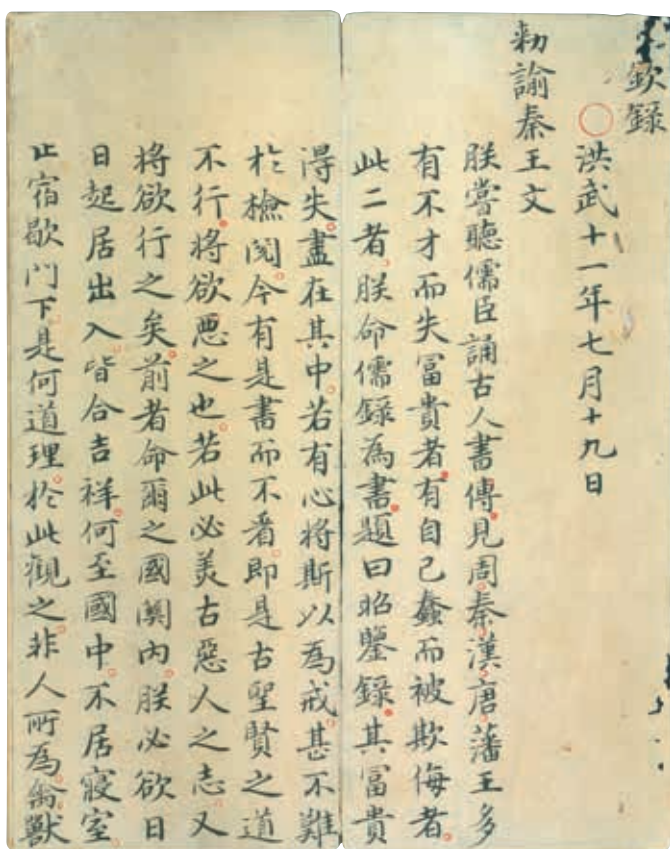 欽錄
洪武十一年七月十九日
勑諭秦王文
朕嘗聽儒臣誦古人書傳見周秦漢唐藩王多
有不才而失冨貴者有自己蠢而被欺侮者
此二者朕命儒録為書題曰昭鑒錄其冨貴
得失盡在其中若有心將斯以為戒甚不難
扵檢閱今有是書而不看即是古聖賢之道
不行將欲惡之也若此必羙古惡人之志又
將欲行之矣前者命爾之國閫內朕必欲日
日起居出入皆合吉祥何至國中不居寢室
止宿歇門下是何道理扵此觀之非人所為禽獸